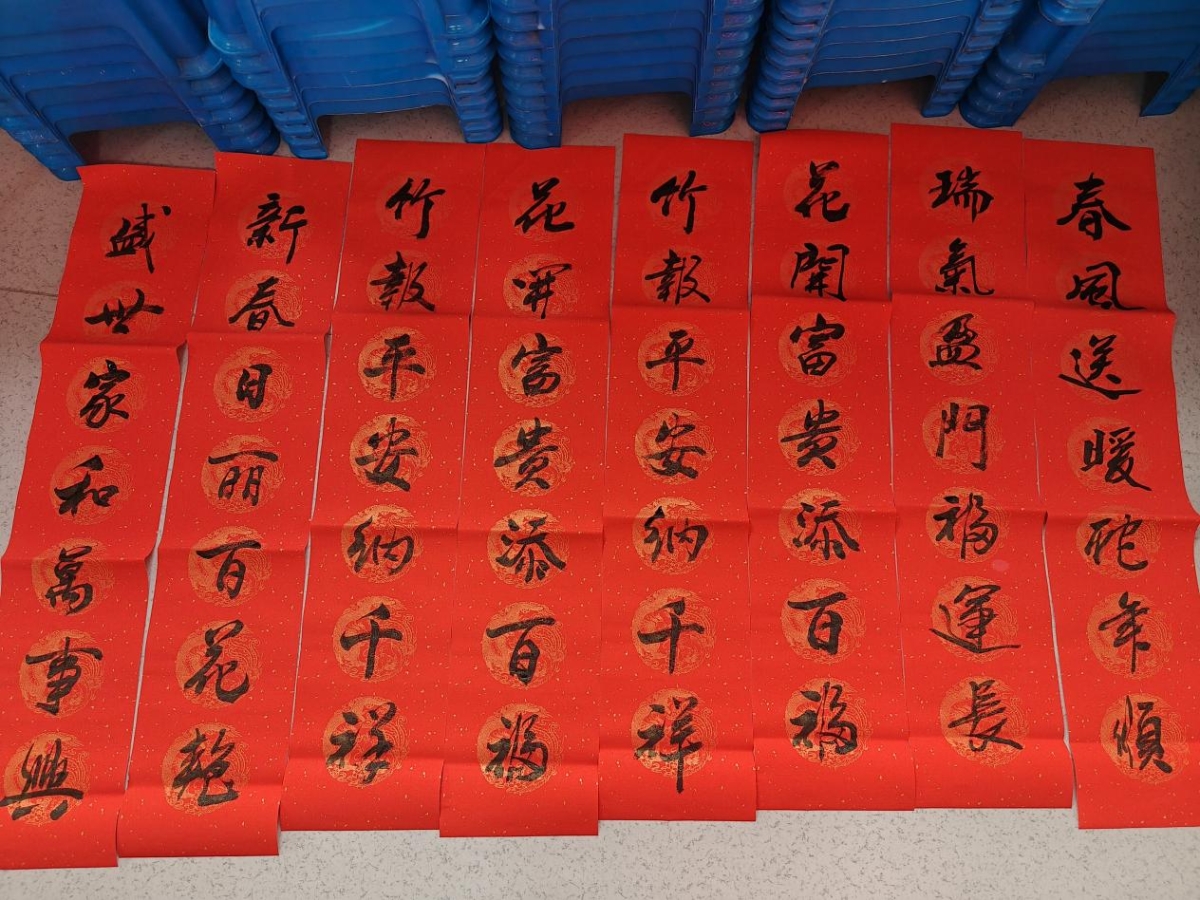 春風送暖蛇年順
瑞氣盈門福運長
花開富貴添百福
竹報平安納千祥
花開富貴添百福
竹報平安納千祥
新春日丽百花艷
盛世家和萬事興